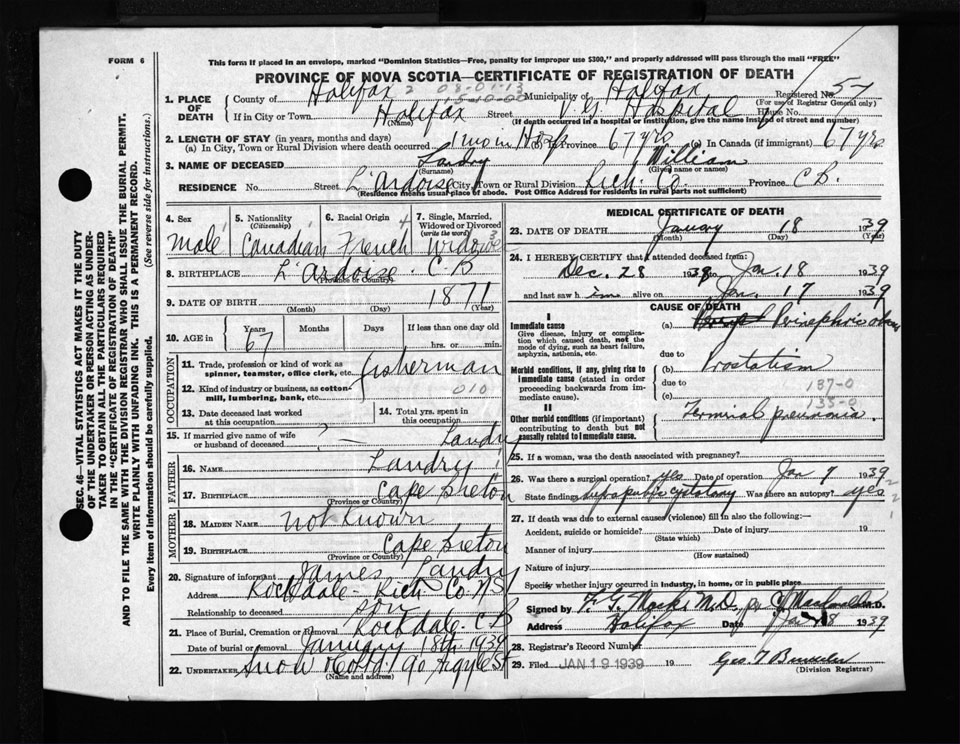 FORM 6
This form if placed in an envelope, marked "Dominion Statistics—Free, penalty for improper use $300," and properly addressed will pass through the mail "FREE"
PROVINCE OF NOVA SCOTIA—CERTIFICATE OF REGISTRATION OF DEATH
1. PLACE OF DEATH
County of Halifax Municipality of Halifax Registered No. 57
(For use of Registrar General only)
If in City or Town Halifax Street V.G. Hospital House No.
(Name) (If death occurred in a hospital or institution, give the name instead of street and number)
2. LENGTH OF STAY (in years, months and days)
(a) In City, Town or Rural Division where death occurred 1 mo in Hosp (b) In Province 67 yrs (c) In Canada (if immigrant) 67 yrs
3. NAME OF DECEASED Landry William
(Surname) (Given name or names)
RESIDENCE No. Street L'Ardoise City, Town or Rural Division Rich. Co. Province C.B.
(Residence means usual place of abode. Post Office Address for residents in rural parts not sufficient)
4. Sex 5. Nationality (Citizenship) 6. Racial Origin 7. Single, Married, Widowed or Divorced (write the word)
Male Canadian French Widower
8. BIRTHPLACE L'Ardoise. C.B
(Province or Country)
9. DATE OF BIRTH 1871
(Month) (Day) (Year)
10. AGE in Years Months Days If less than one day old
67 hrs. or min.
OCCUPATION
11. Trade, profession or kind of work as spinner, teamster, office clerk, etc. fisherman
12. Kind of industry or business, as cotton-mill, lumbering, bank, etc. 010
13. Date deceased last worked at this occupation
14. Total yrs. spent in this occupation
15. If married give name of wife or husband of deceased ? — Landry
FATHER
16. NAME Landry
17. BIRTHPLACE Cape Breton
(Province or Country)
MOTHER
18. MAIDEN NAME not known
19. BIRTHPLACE Cape Breton
(Province or Country)
20. Signature of informant James Landry
Address Rockdale - Rich. Co. NS
Relationship to deceased son
21. Place of Burial, Cremation or Removal Rockdale. C B
Date of burial or removal January 18th 1939
22. UNDERTAKER Snow & Co Ltd 90 Argyle St
(Name and address)
MEDICAL CERTIFICATE OF DEATH
23. DATE OF DEATH January 18 1939
(Month) (Day) (Year)
24. I HEREBY CERTIFY that I attended deceased from:
Dec. 28 1938 to Jan. 18 1939
and last saw h im alive on Jan. 17 1939
CAUSE OF DEATH
I
Immediate cause
Give disease, injury or complication which caused death, not the mode of dying, such as heart failure, asphyxia, asthenia, etc.
(a)
due to
Morbid conditions, if any, giving rise to immediate cause (stated in order proceeding backwards from immediate cause).
(b) Prostatism
due to 137-0
(c) 133-0
II
Other morbid conditions (if important) contributing to death but not causally related to immediate cause.
Terminal pneumonia.
25. If a woman, was the death associated with pregnancy?
26. Was there a surgical operation? yes Date of operation Jan 9 1939
State findings suprapubic cystotomy Was there an autopsy? yes
27. If death was due to external causes (violence) fill in also the following:—
Accident, suicide or homicide? Date of injury 19
(State which)
Manner of injury
(How sustained)
Nature of injury
Specify whether injury occurred in industry, in home, or in public place
Signed by F. G. Mack M.D. M.D.
Address Halifax Date Jan 18 1939
28. Registrar's Record Number
29. Filed JAN 19 1939 19 Geo. T
(Division Registrar)
SEC. 46—VITAL STATISTICS ACT MAKES IT THE DUTY
OF THE UNDERTAKER OR PERSON ACTING AS UNDER-
TAKER TO OBTAIN ALL THE PARTICULARS REQUIRED
IN THE "CERTIFICATE OF REGISTRATION OF DEATH"
AND TO FILE THE SAME WITH THE DIVISION REGISTRAR WHO SHALL ISSUE THE BURIAL PERMIT.
WRITE PLAINLY WITH UNFADING INK. THIS IS A PERMANENT RECORD.
Every item of Information should be carefully supplied. (See reverse side for instructions.)